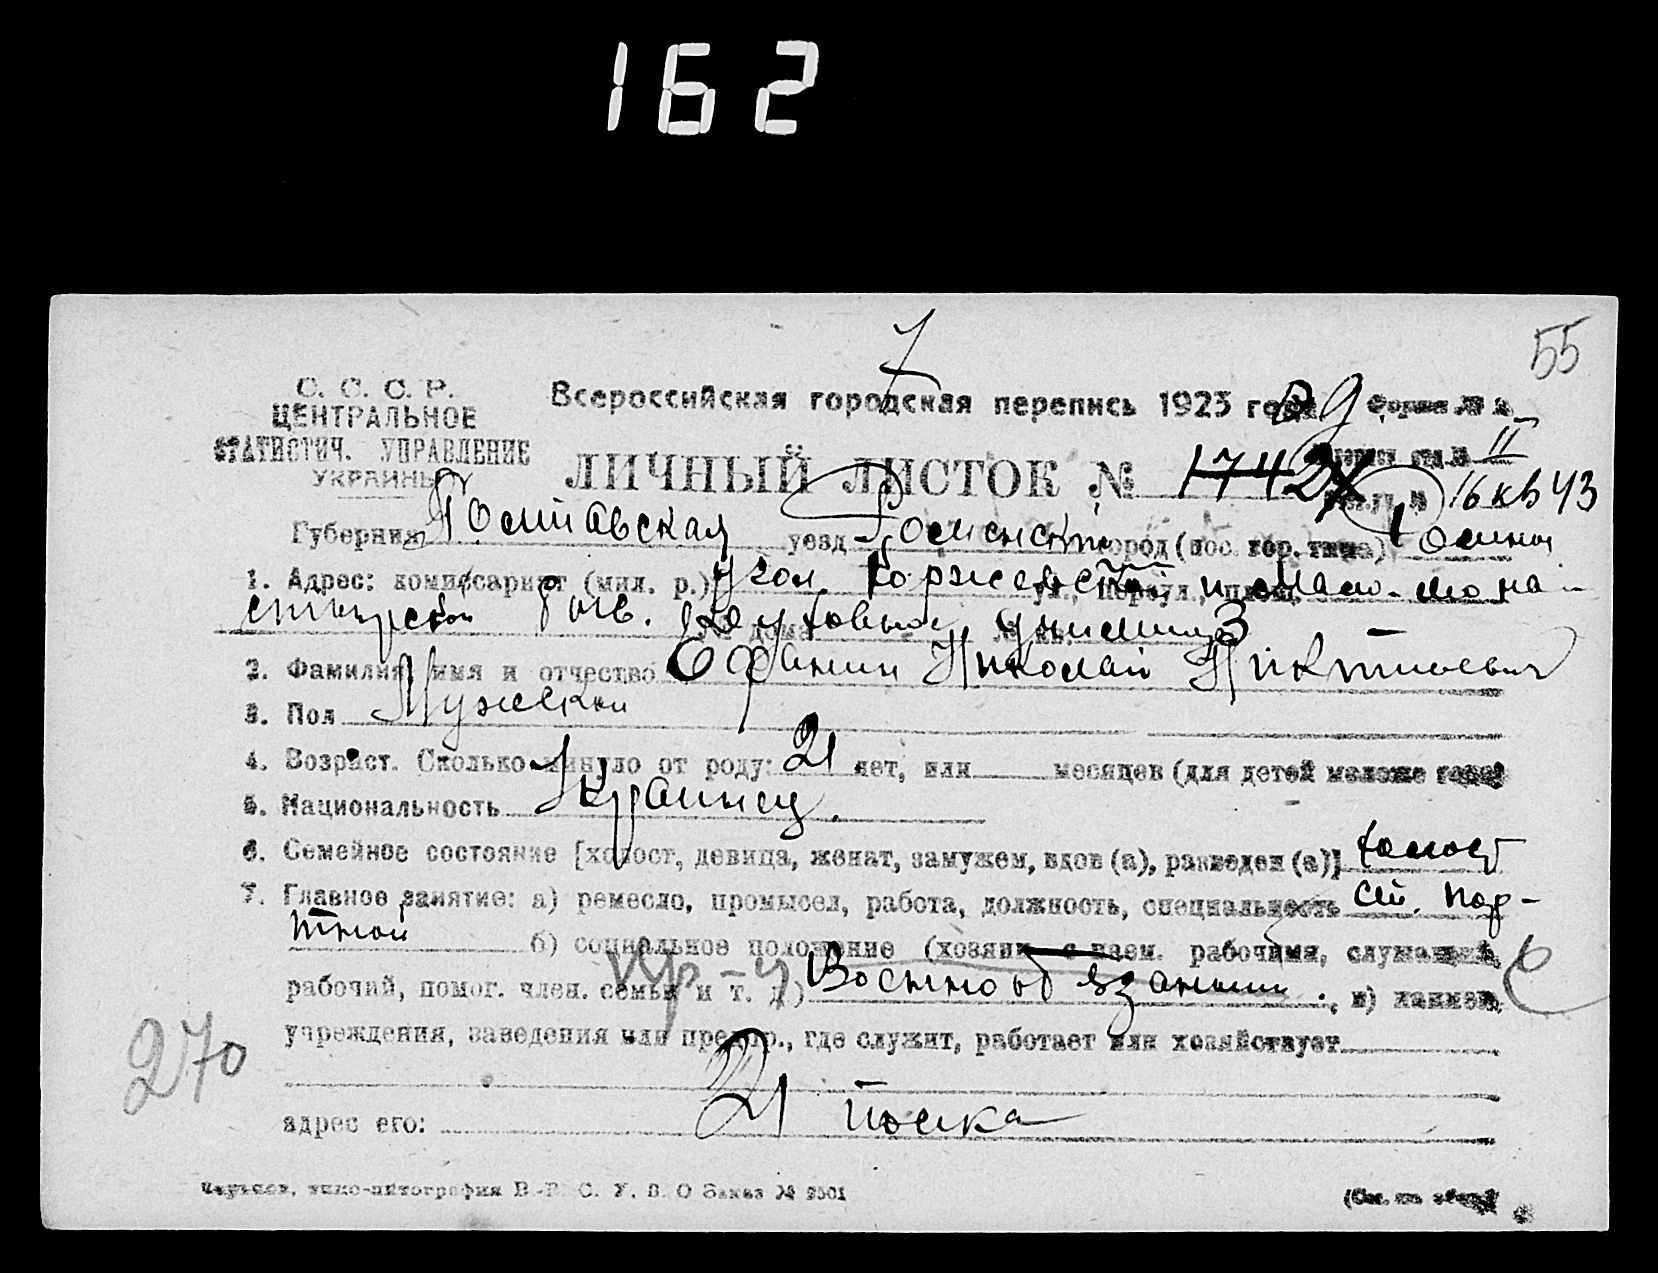 162
7
55
С. С. С. Р.
ЦЕНТРАЛЬНОЕ
СТАТИСТИЧ. УПРАВЛЕНИЕ
УКРАИНЫ
Всероссийская городская перепись 1923 года 29 Форма № 2
II
ЛИЧНЫЙ ЛИСТОК № 1742 16 кв 43
Губерния Полтавская уезд Роменский город (пос. гор. типа) Ромны
1. Адрес: комиссариат (мил. р.) угол Коржевской ул., переул., площ. и Мало-мона-
стырской быв. Духовное училище № дома 3
2. Фамилия, имя и отчество Ефанин Николай Никитиевич
3. Пол Мужской
4. Возраст. Сколько минуло от роду: 21 лет, или месяцев (для детей моложе года)
5. Национальность Украинец.
6. Семейное состояние [холост, девица, женат, замужем, вдов (а), разведен (а)] холост
7. Главное занятие: а) ремесло, промысел, работа, должность, специальность пор-
тной б) социальное положение (хозяин с наем. рабочими, служащий,
рабочий, помог. член. семьи и т. д.) Военнообязанный., в) наимен.
учреждения, заведения или предпр., где служит, работает или хозяйствует
270
адрес его: 21 полка
Харьков, типо-литография В.-У. С. У. В. О Заказ № 2501